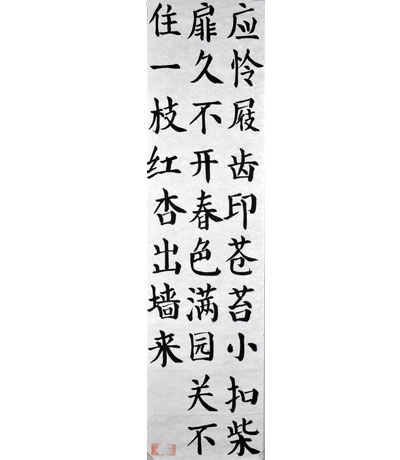 应怜屐齿印苍苔小扣柴
扉久不开春色满园关不
住一枝红杏出墙来